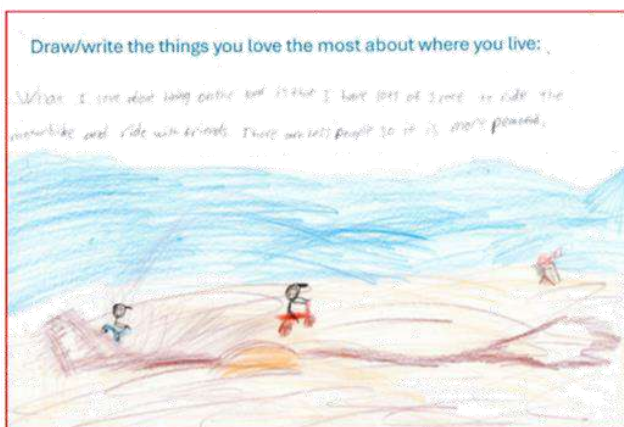 Draw/write the things you love the most about where you live:
What I love about living on the land is that I have lots of space to ride the
motorbike and ride with friends. There are less people so it is more peaceful.